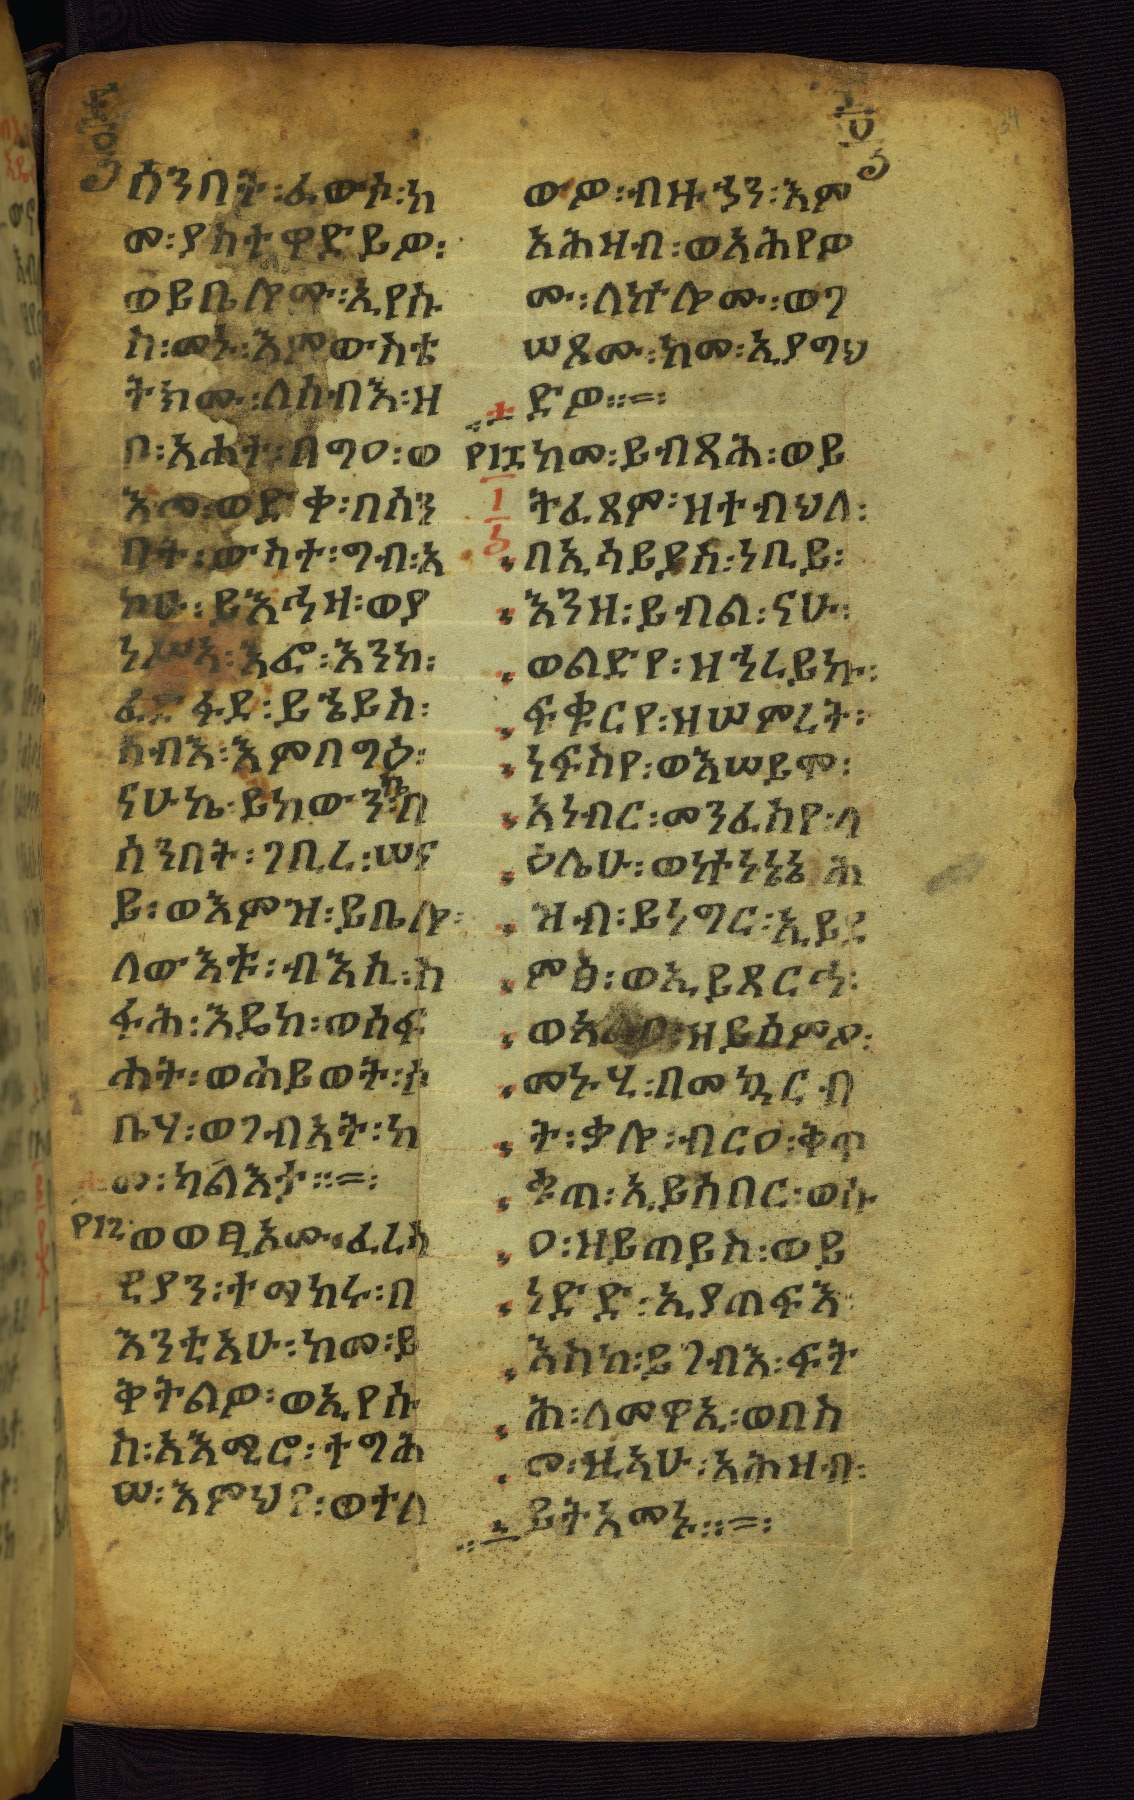 ሰንበት፡ፈውሶ፡ከ
መ፡ያስተዋድይዎ፡
ወይቤሎሙ፡ኢየሱ
ስ፡መኑ፡እምውስቴ
ትክሙ፡ለብእ፡ዘ
ቦ፡አሐተ፡በግዐ፡ወ
እመ፡ወድቀ፡በሰን
በት፡ውስተ፡ግብ፡አ
ኮሁ፡ይእኅዛ፡ወያ
ነሥኣ፡እፎ፡እንከ፡
ፈድፋደ፡ይኄይስ፡
ሰብእ፡እምበግዕ፡
ናሁኬ፡ይከውን፡በ
ሰንበት፡ገቢረ፡ሠና
ይ፡ወእምዝ፡ይቤሎ፡
ለውእቱ፡ብእሲ፡ስ
ፋሕ፡እዴከ፡ወሰፍ
ሐት፡ወሐይወት፡ሶ
ቤሃ፡ወገብአት፡ከ
መ፡ካልእታ፡፡=፡
ወወፂኦሙ፡ፈሪሳ
ዊያን፡ተማከሩ፡በ
እንቲአሁ፡ከመ፡ይ
ቅትልዎ፡ወኢየሱ
ስ፡አእሚሮ፡ተግሕ
ሠ፡እምህየ፡ወተለ
ውዎ፡ብዙኃን፡እም
አሕዛብ፡ወአሕየዎ
ሙ፡ለኵሎሙ፡ወገ
ሠጾሙ፡ከመ፡ኢያግህ
ድዎ፡፡=፡
ከመ፡ይብጻሕ፡ወይ
ትፈጸም፡ዘተብህለ፡
በኢሳይያስ፡ነቢይ፡
እንዘ፡ይብል፡ናሁ፡
ወልድየ፡ዘኀረይኩ፡
ፍቁርየ፡ዘሠምረት፡
ነፍስየ፡ወእሠይሞ፡
አነብር፡መንፈስየ፡ላ
ዕሌሁ፡ወኵነኔ ሕ
ዝብ፡ይነግር፡ኢይደ
ምፅ፡ወኢይጸርኅ፡
ወአልቦ፡ዘይሰምዖ፡
መኑሂ፡በመኳርብ
ት፡ቃሎ፡ብርዐ፡ቅጥ
ቁጠ፡ኢይሰበር፡ወሱ
ዐ፡ዘይጠይስ፡ወይ
ነድድ፡ኢያጠፍእ
እስከ፡ይገብእ፡ፍት
ሕ፡ለመዊኢ፡ወበስ
መ፡ዚአሁ፡አሕዛብ፡
ይትአመኑ፡፡=፡